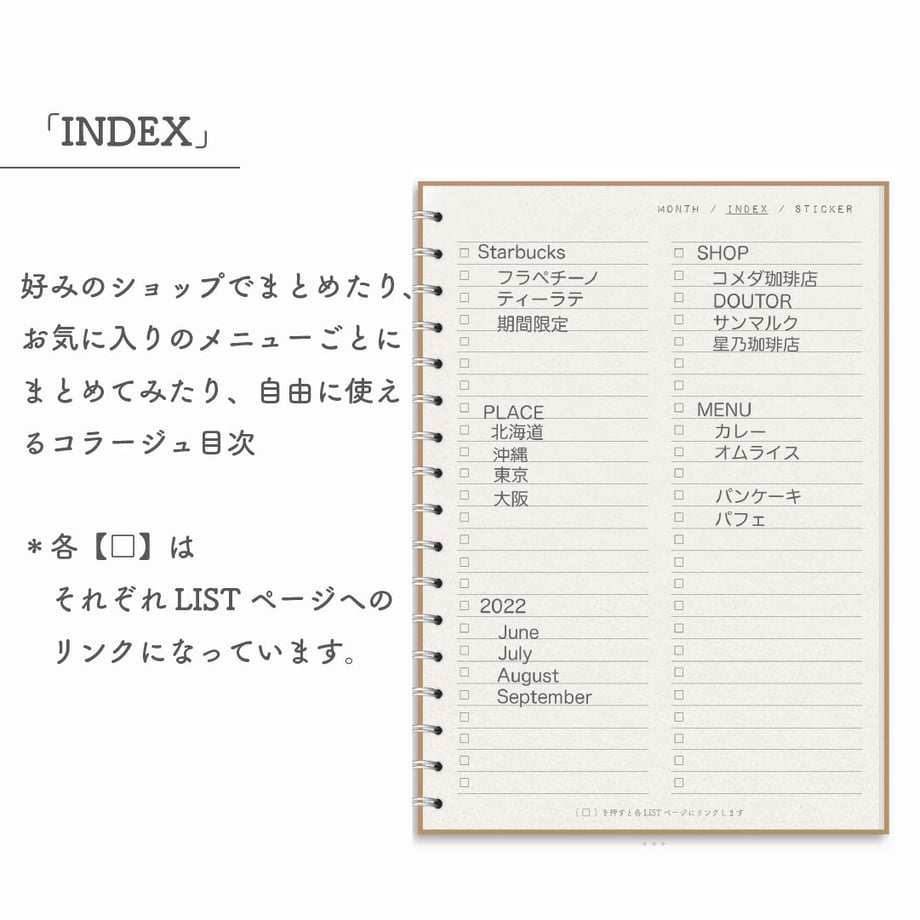 「INDEX」
好みのショップでまとめたり、
お気に入りのメニューごとに
まとめてみたり、自由に使え
るコラージュ目次
＊各【□】は
それぞれLISTページへの
リンクになっています。
MONTH / INDEX / STICKER
Starbucks
フラペチーノ
ティーラテ
期間限定
PLACE
北海道
沖縄
東京
大阪
2022
June
July
August
September
SHOP
コメダ珈琲店
DOUTOR
サンマルク
星乃珈琲店
MENU
カレー
オムライス
パンケーキ
パフェ
〔□〕を押すと各LISTページにリンクします